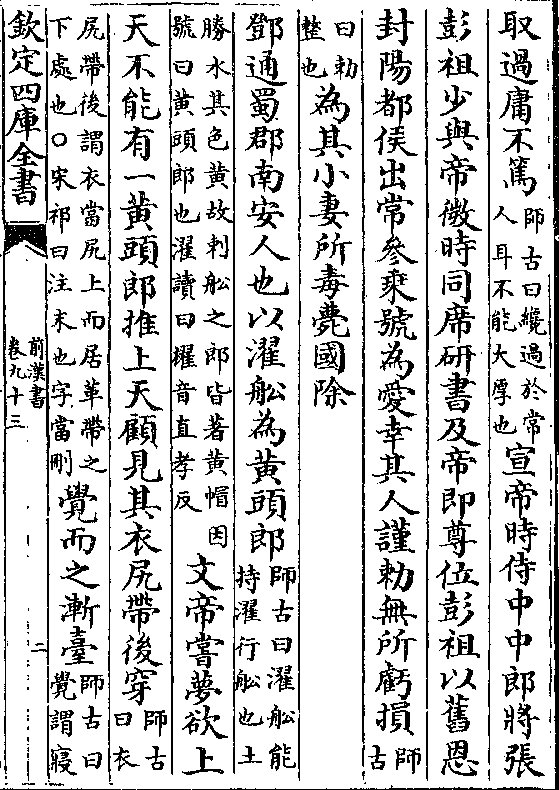 取過庸不篤師古曰纔過於常人耳不能大厚也宣帝時侍中中郎將張
彭祖少與帝微時同席研書及帝即尊位彭祖以舊恩
封陽都侯出常參乘號為愛幸其人謹勅無所虧損師古
曰勅整也為其小妻所毒薨國除
鄧通蜀郡南安人也以濯船為黃頭郎師古曰濯船能持濯行船也土
勝水其色黃故刺船之郎皆著黃帽因號曰黃頭郎也濯讀曰櫂音直孝反文帝嘗夢欲上
天不能有一黃頭郎推上天顧見其衣尻帶後穿師古曰衣
尻帶後謂衣當尻上而居革帶之下處也○宋祁曰注末也字當刪覺而之漸臺師古曰覺謂寢
欽定四庫全書
前漢書
卷九十三
二